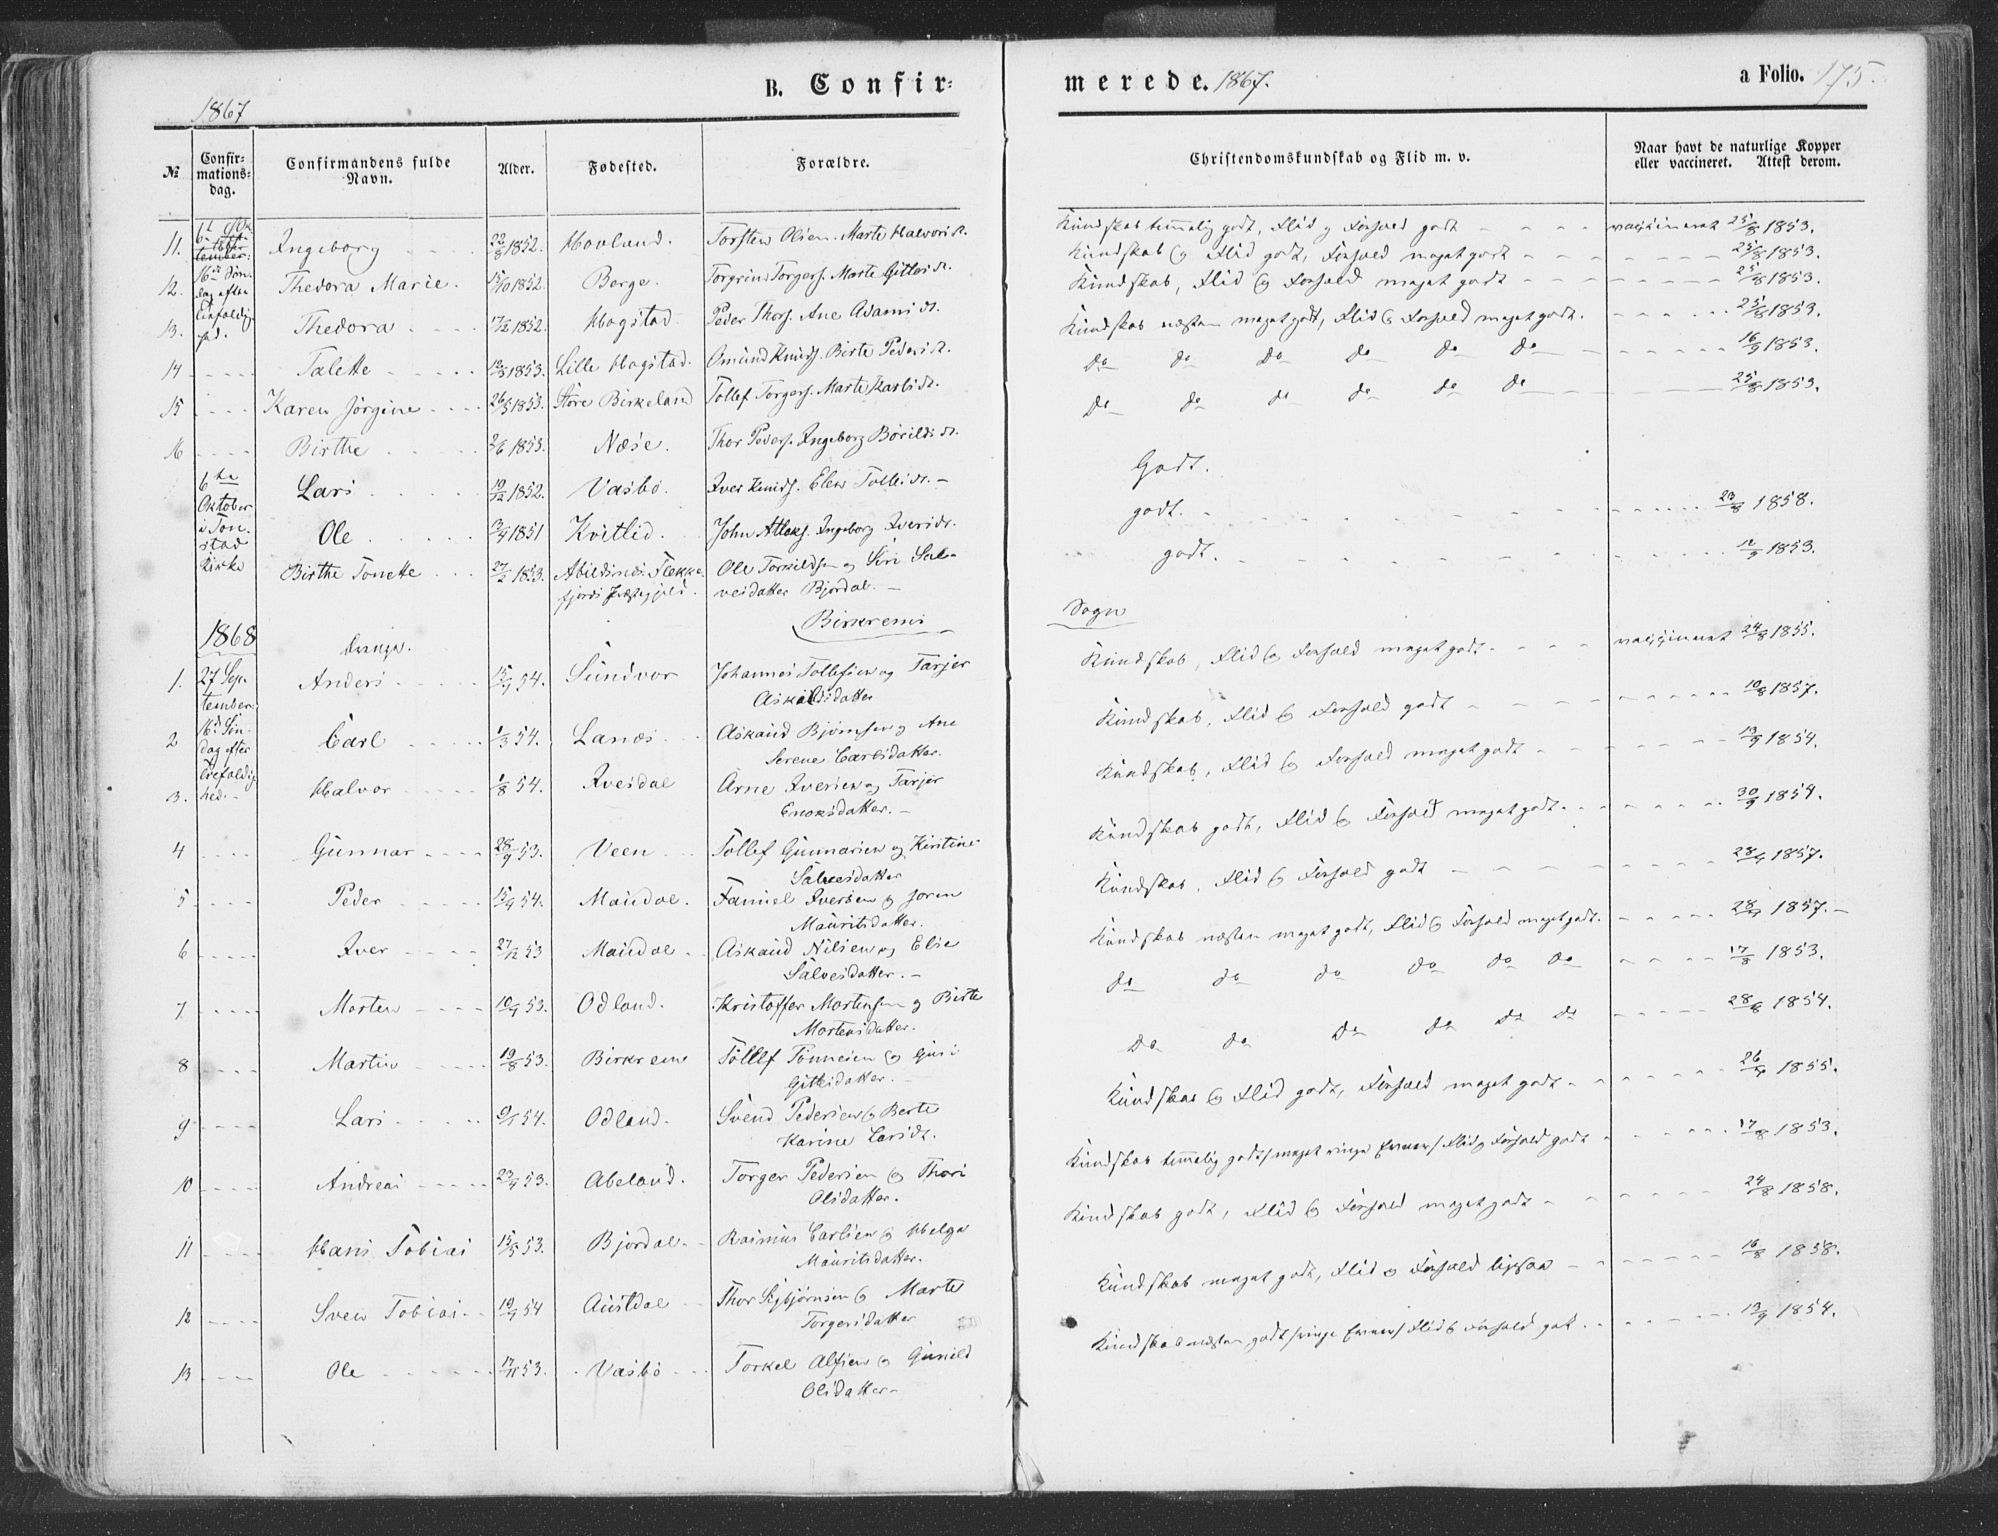 B. Confir=
1867
№
Confir=
mations=
dag.
Confirmandens fulde
Navn.
Alder.
Fødested.
Forældre.
11. Ingeborg 22/3 1852. Hovland. Torsten Olsen. Marte Halvorsdt.
12. 16de Søn- Thedora Marie. 15/10 1852. Berge. Torgrim Torgers. Marte Gittesdt.
dag efter
13. Thedora 17/12 1852. Hogstad. Peder Thors. Ane Adamsdt.
14 Talette 12/3 1853. Lille Hogstad. Omund Knuds. Birte Pedersdt.
15 Karen Jørgine 26/5 1853. Store Birkeland Tollef Torgers. Marte Karlsdt.
16 Birthe 2/6 1853. Næse. Thor Peders. Ingeborg Børildsdt.
6te
Oktober
i Ton-
stad
Kirke
Lars 19/12 1852. Vasbø. Iver Knuds. Elen Tollisdt.
Ole 1851 Kvitlid. John Atlaks. Ingeborg Iversdt.
Birthe Tonette 27/2 1853. Flekke- Ole Torkildsen og Siri Sal-
fjords Præstegjeld. vesdatter Bjordal.
Birkrems
1868 Drenge.
1. 27 Sep- Anders 15/1 54. Sundvor Johannes Tollefsen og Tarjer
tember. Askildsdatter
2 16d Søn- Carl 1/3 54. Lanes. Askaud Bjørnsen og Ane
dag efter Serene Carlsdatter.
Trefoldig-
3. hed. Halvor 1/8 54. Ivesdal Arne Iversen og Tarjer
Enoksdatter.
4 Gunnar 28/9 53. Veen Tollef Gunnarsen og Kirstine
Salvesdatter
5 Peder 15/4 54. Maudal. Iversen og Joren
Mauritsdatter.
6 Iver 27/12 53 Maudal Askaud Nilsen og Elie
Salvesdatter.
7 Morten 10/9 53. Odland. Kristoffer Mortensen og Birte
Mortensdatter.
8 Martin 19/8 53. Birkrem Tollef Tønnesen og Guri
Gittesdatter.
9 Lars 9/1 54. Odland. Svend Pedersen og Berte
Karine Larsdt.
10 Andreas 23/9 53. Abeland. Torger Pedersen og Thori
Olsdatter.
11 Hans Tobias 15/5 53. Bjordal Rasmus Carlsen og Helga
Mauritsdatter.
12 Sven Tobias 19/4 54 Austdal Thor Sigbjørnsen og Marte
Torgersdatter
13 Ole 17/11 53. Vasbø Torkel Alfsen og Gunild
Olsdatter
merede. 1867.
a Folio. 175.
Christendomskundskab og Flid m. v.
Naar havt de naturlige Kopper
eller vaccineret. Attest derom.
Kundskab temmelig godt, Flid og Forhold godt vaccineret 25/8 1853.
Kundskab og Flid godt, Forhold meget godt 25/8 1853.
Kundskab, Flid og Forhold meget godt 25/8 1853.
Kundskab næsten meget godt, Flid og Forhold meget godt. 25/8 1853.
do do do do do do 16/9 1853.
do do do do do do 25/8 1853.
Godt.
godt. 23/8 1858.
godt. 12/9 1853.
Sogn
Kundskab, Flid og Forhold meget godt vaccineret 24/8 1855.
Kundskab, Flid og Forhold godt 10/8 1857.
Kundskab, Flid og Forhold meget godt 13/9 1854.
Kundskab godt, Flid og Forhold meget godt. 30/9 1854.
Kundskab, Flid og Forhold godt 28/9 1857.
Kundskab næsten meget godt, Flid og Forhold meget godt. 28/9 1857.
do do do do do do 17/8 1853.
do do do do do do 28/8 1854.
Kundskab og Flid godt, Forhold meget godt 26/9 1855.
Kundskab temmelig godt/meget ringe Evner/ Flid og Forhold godt 17/8 1853.
Kundskab godt, Flid og Forhold meget godt 24/8 1858.
Kundskab meget godt, Flid og Forhold ligesaa 16/8 1858.
Kundskab næsten godt/ringe Evner/ Flid og Forhold god. 13/9 1854.